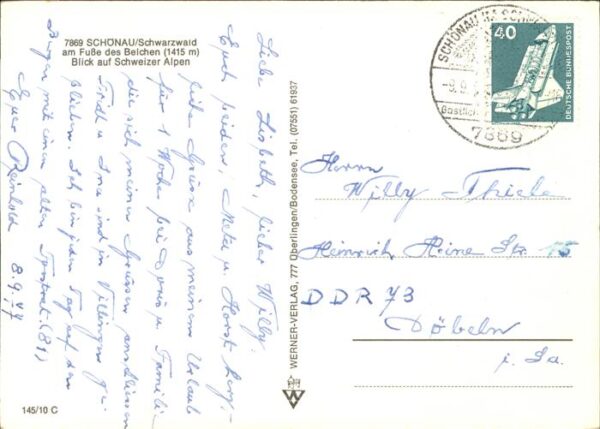 7869 SCHÖNAU/Schwarzwald
am Fuße des Belchen (1415 m)
Blick auf Schweizer Alpen
Liebe Lisbeth, lieber Willy.
Euch beiden, Meta u. Horst herz-
liche Grüsse aus meinem Urlaub
für 1 Woche bei Familie
die sich meinen Grüssen anschliessen
sind in Villingen ge-
blieben. Ich bin jeden Tag auf den
Bergen mit einem alten (81)
Euer Reinhold 8.9.77
145/10 C
WERNER-VERLAG, 777 Überlingen/Bodensee, Tel. (07551) 61937
SCHÖNAU IM SCHW
-9.9.
Gastlich
7869
40
DEUTSCHE BUNDESPOST
Herrn
Willy Thiele
Heinrich Heine Str. 15
DDR 73
Döbeln
i. Sa.